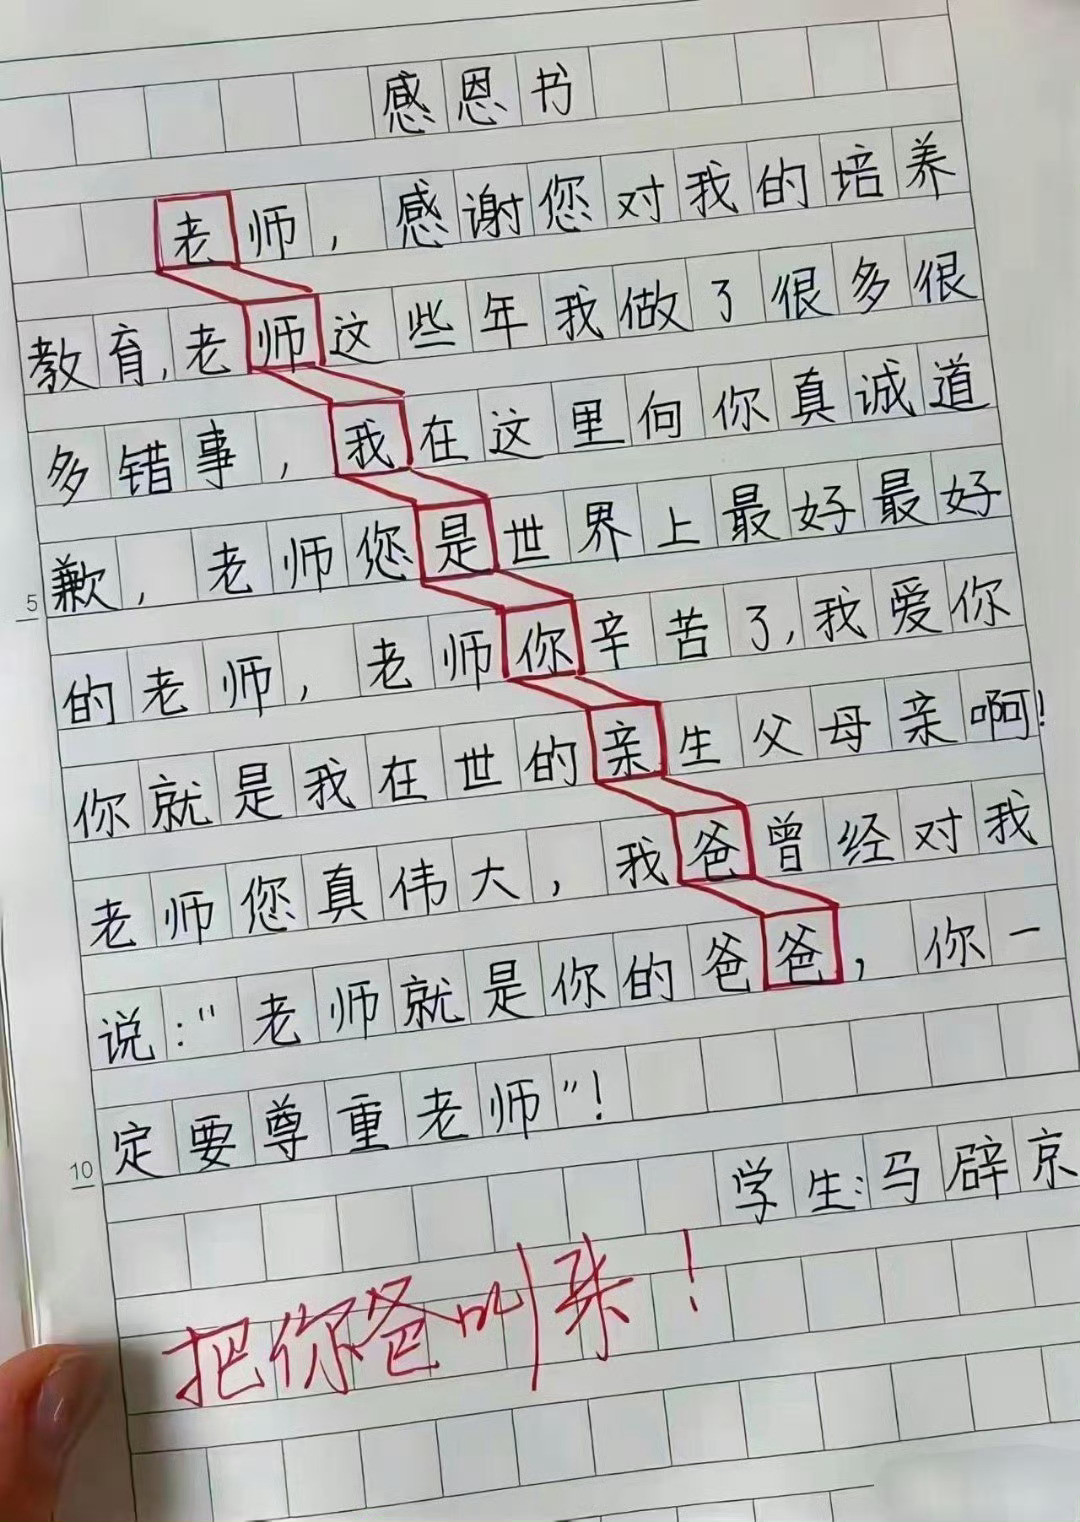 感恩书
老师，感谢您对我的培养
教育，老师这些年我做了很多很
多错事，我在这里向你真诚道
歉，老师您是世界上最好最好
5
的老师，老师你辛苦了，我爱你
你就是我在世的亲生父母亲啊！
老师您真伟大，我爸曾经对我
说："老师就是你的爸爸，你一
定要尊重老师"！
10
学生：马辟京
把你爸叫来！